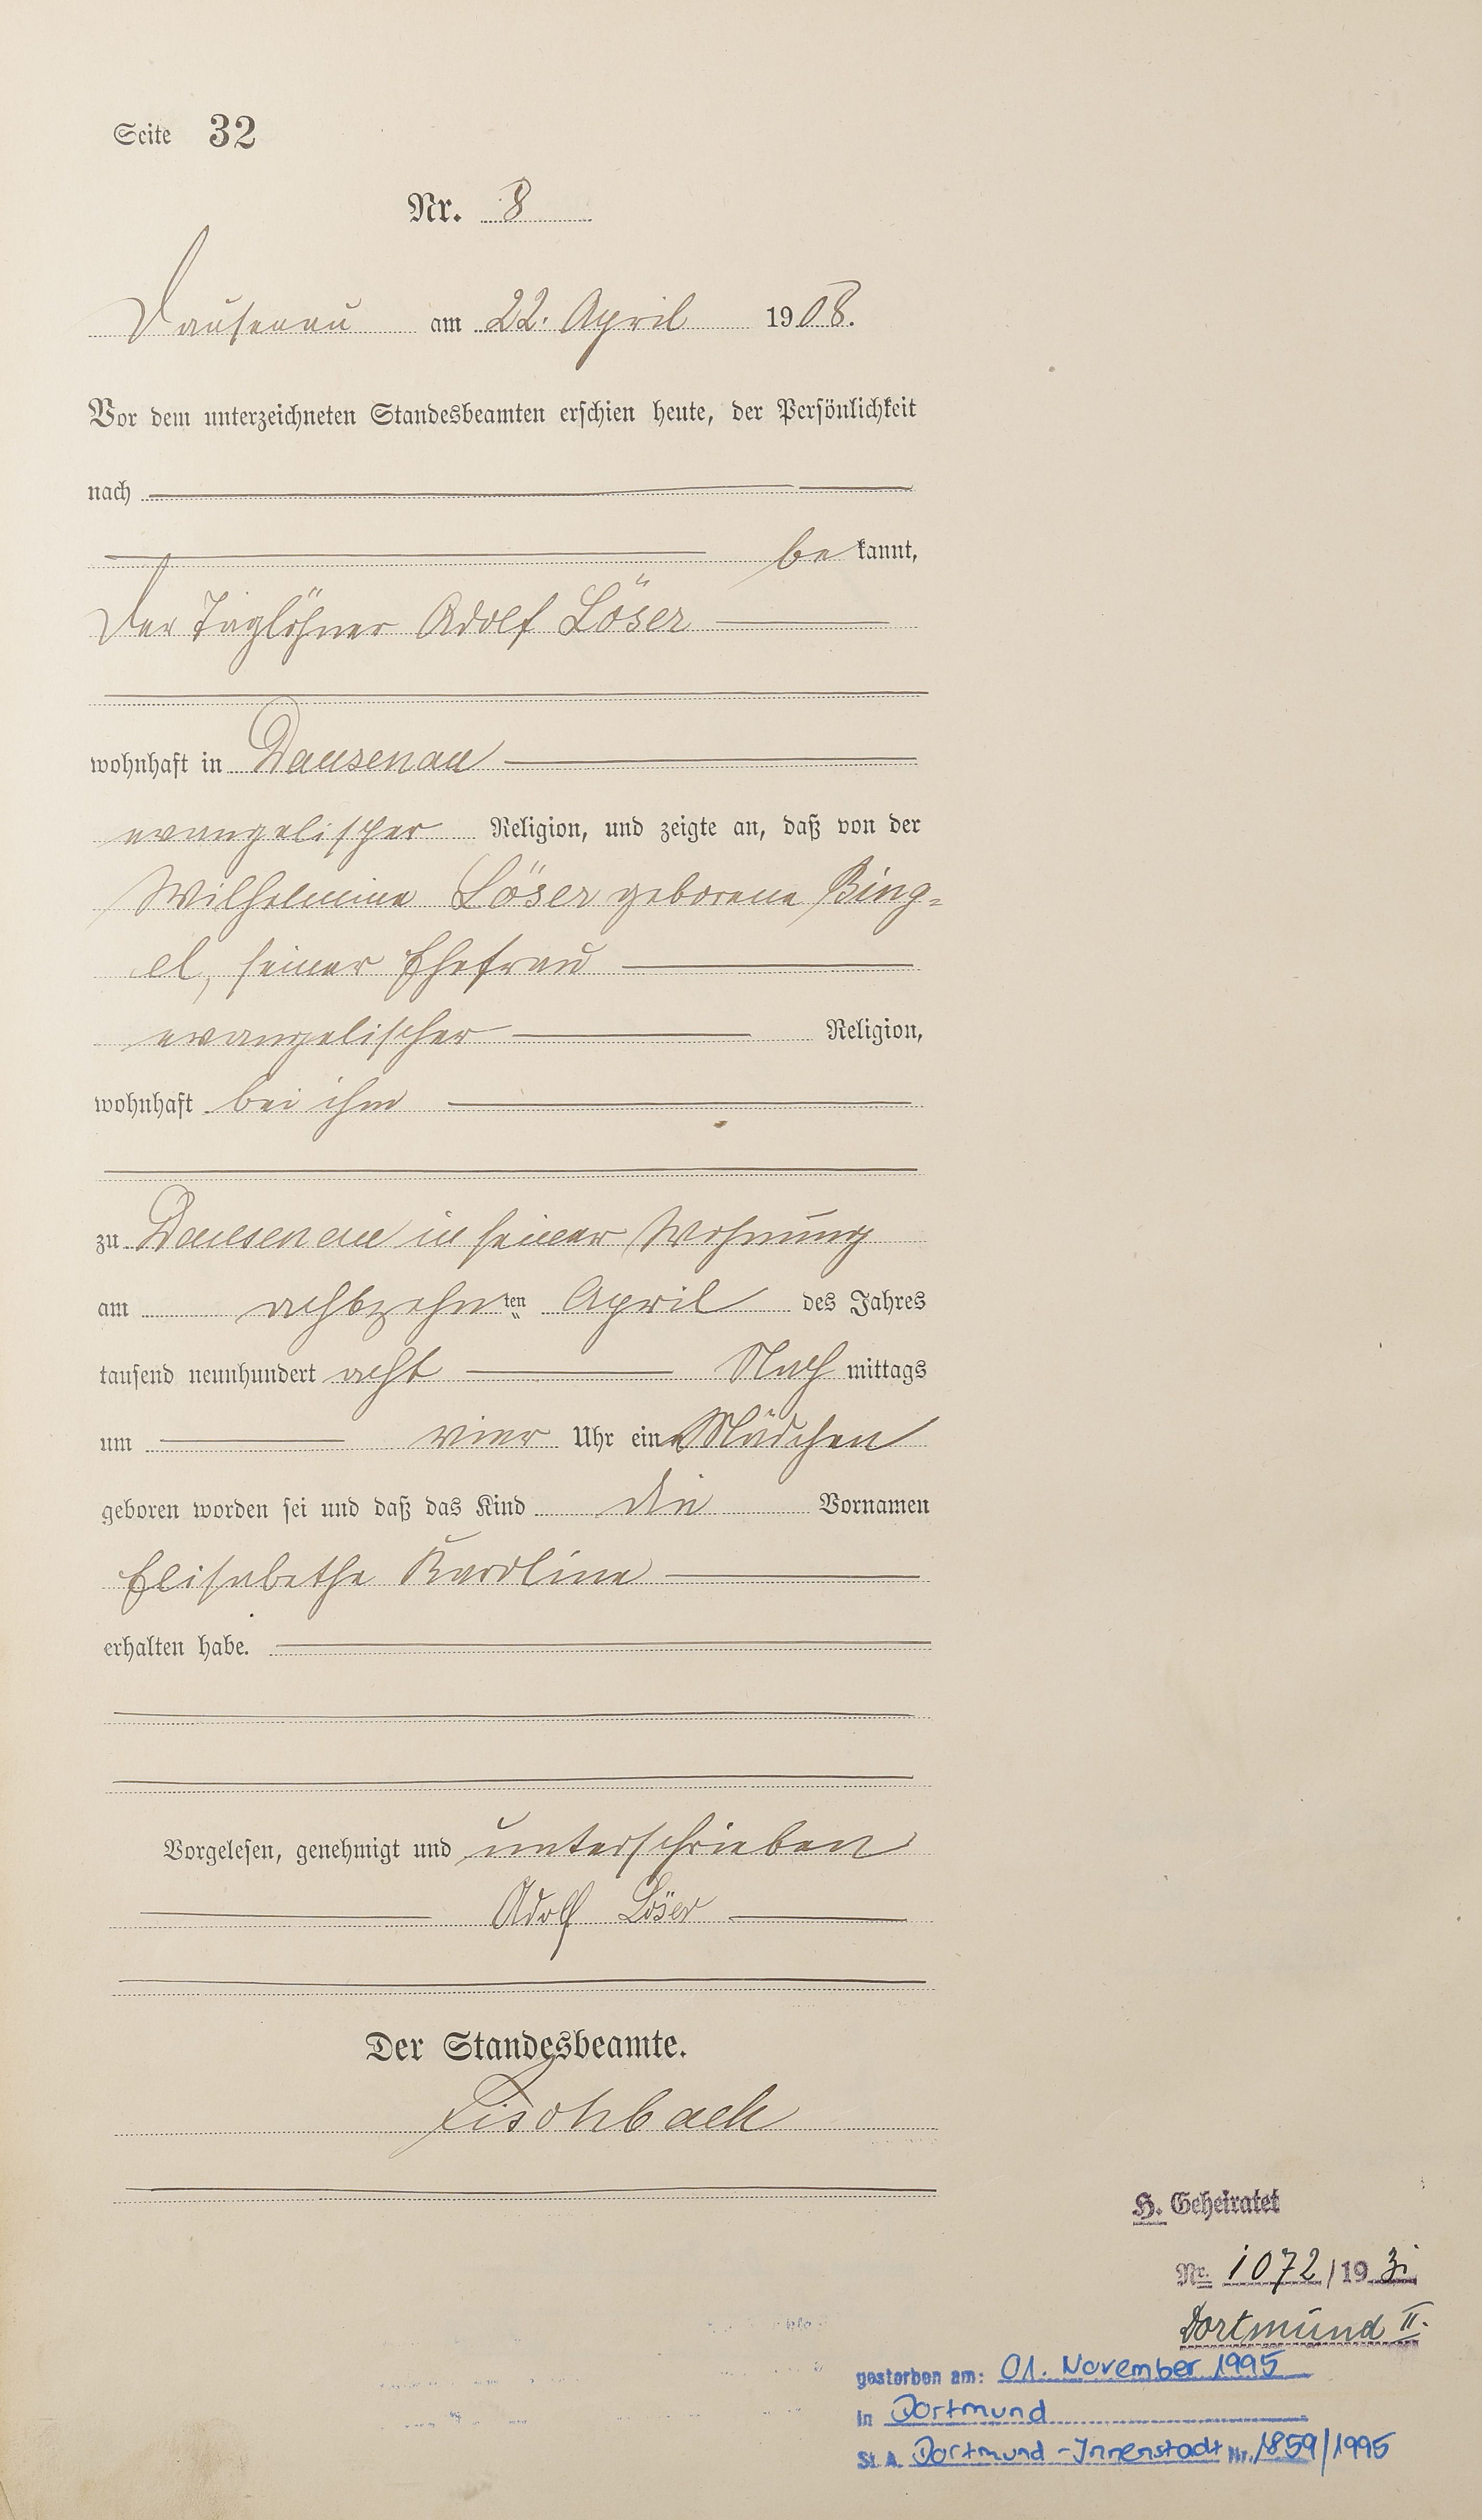 Seite 32
Nr. 8
Dausenau am 22. April 1908.
Vor dem unterzeichneten Standesbeamten erschien heute, der Persönlichkeit
nach
be kannt,
der Taglöhner Adolf Löser
wohnhaft in Dausenau
evangelischer Religion, und zeigte an, daß von der
Wilhelmine Löser geborene Bing=
el, seiner Ehefrau
evangelischer Religion,
wohnhaft bei ihm
zu Dausenau in seiner Wohnung
am achtzehnten April des Jahres
tausend neunhundert acht Nach mittags
um vier Uhr ein Mädchen
geboren worden sei und daß das Kind die Vornamen
Elisabethe Karoline
erhalten habe.
Vorgelesen, genehmigt und unterschrieben
Adolf Löser
Der Standesbeamte.
Fischbach
H. Geheiratet
Nr. 1072/1931
Dortmund II.
gestorben am: 01. November 1995
in Dortmund
St. A. Dortmund-Innenstadt Nr. 1859/1995